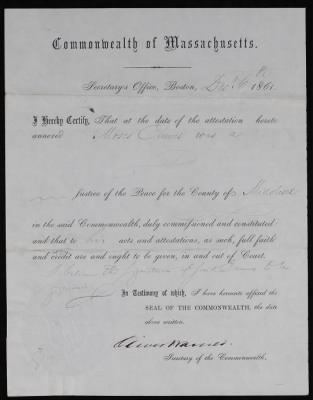 Commonwealth of Massachusetts.
Secretary's Office, Boston, Dec. 6th 1861
I Hereby Certify, That at the date of the attestation hereto
annexed Moses was a
Justice of the Peace for the County of Middlesex
in the said Commonwealth, duly commissioned and constituted
and that to his acts and attestations, as such, full faith
and credit are and ought to be given, in and out of Court.
I believe the signature to be
genuine
In Testimony of which, I have hereunto affixed the
SEAL OF THE COMMONWEALTH, the date
above written.
Oliver Warner.
Secretary of the Commonwealth.